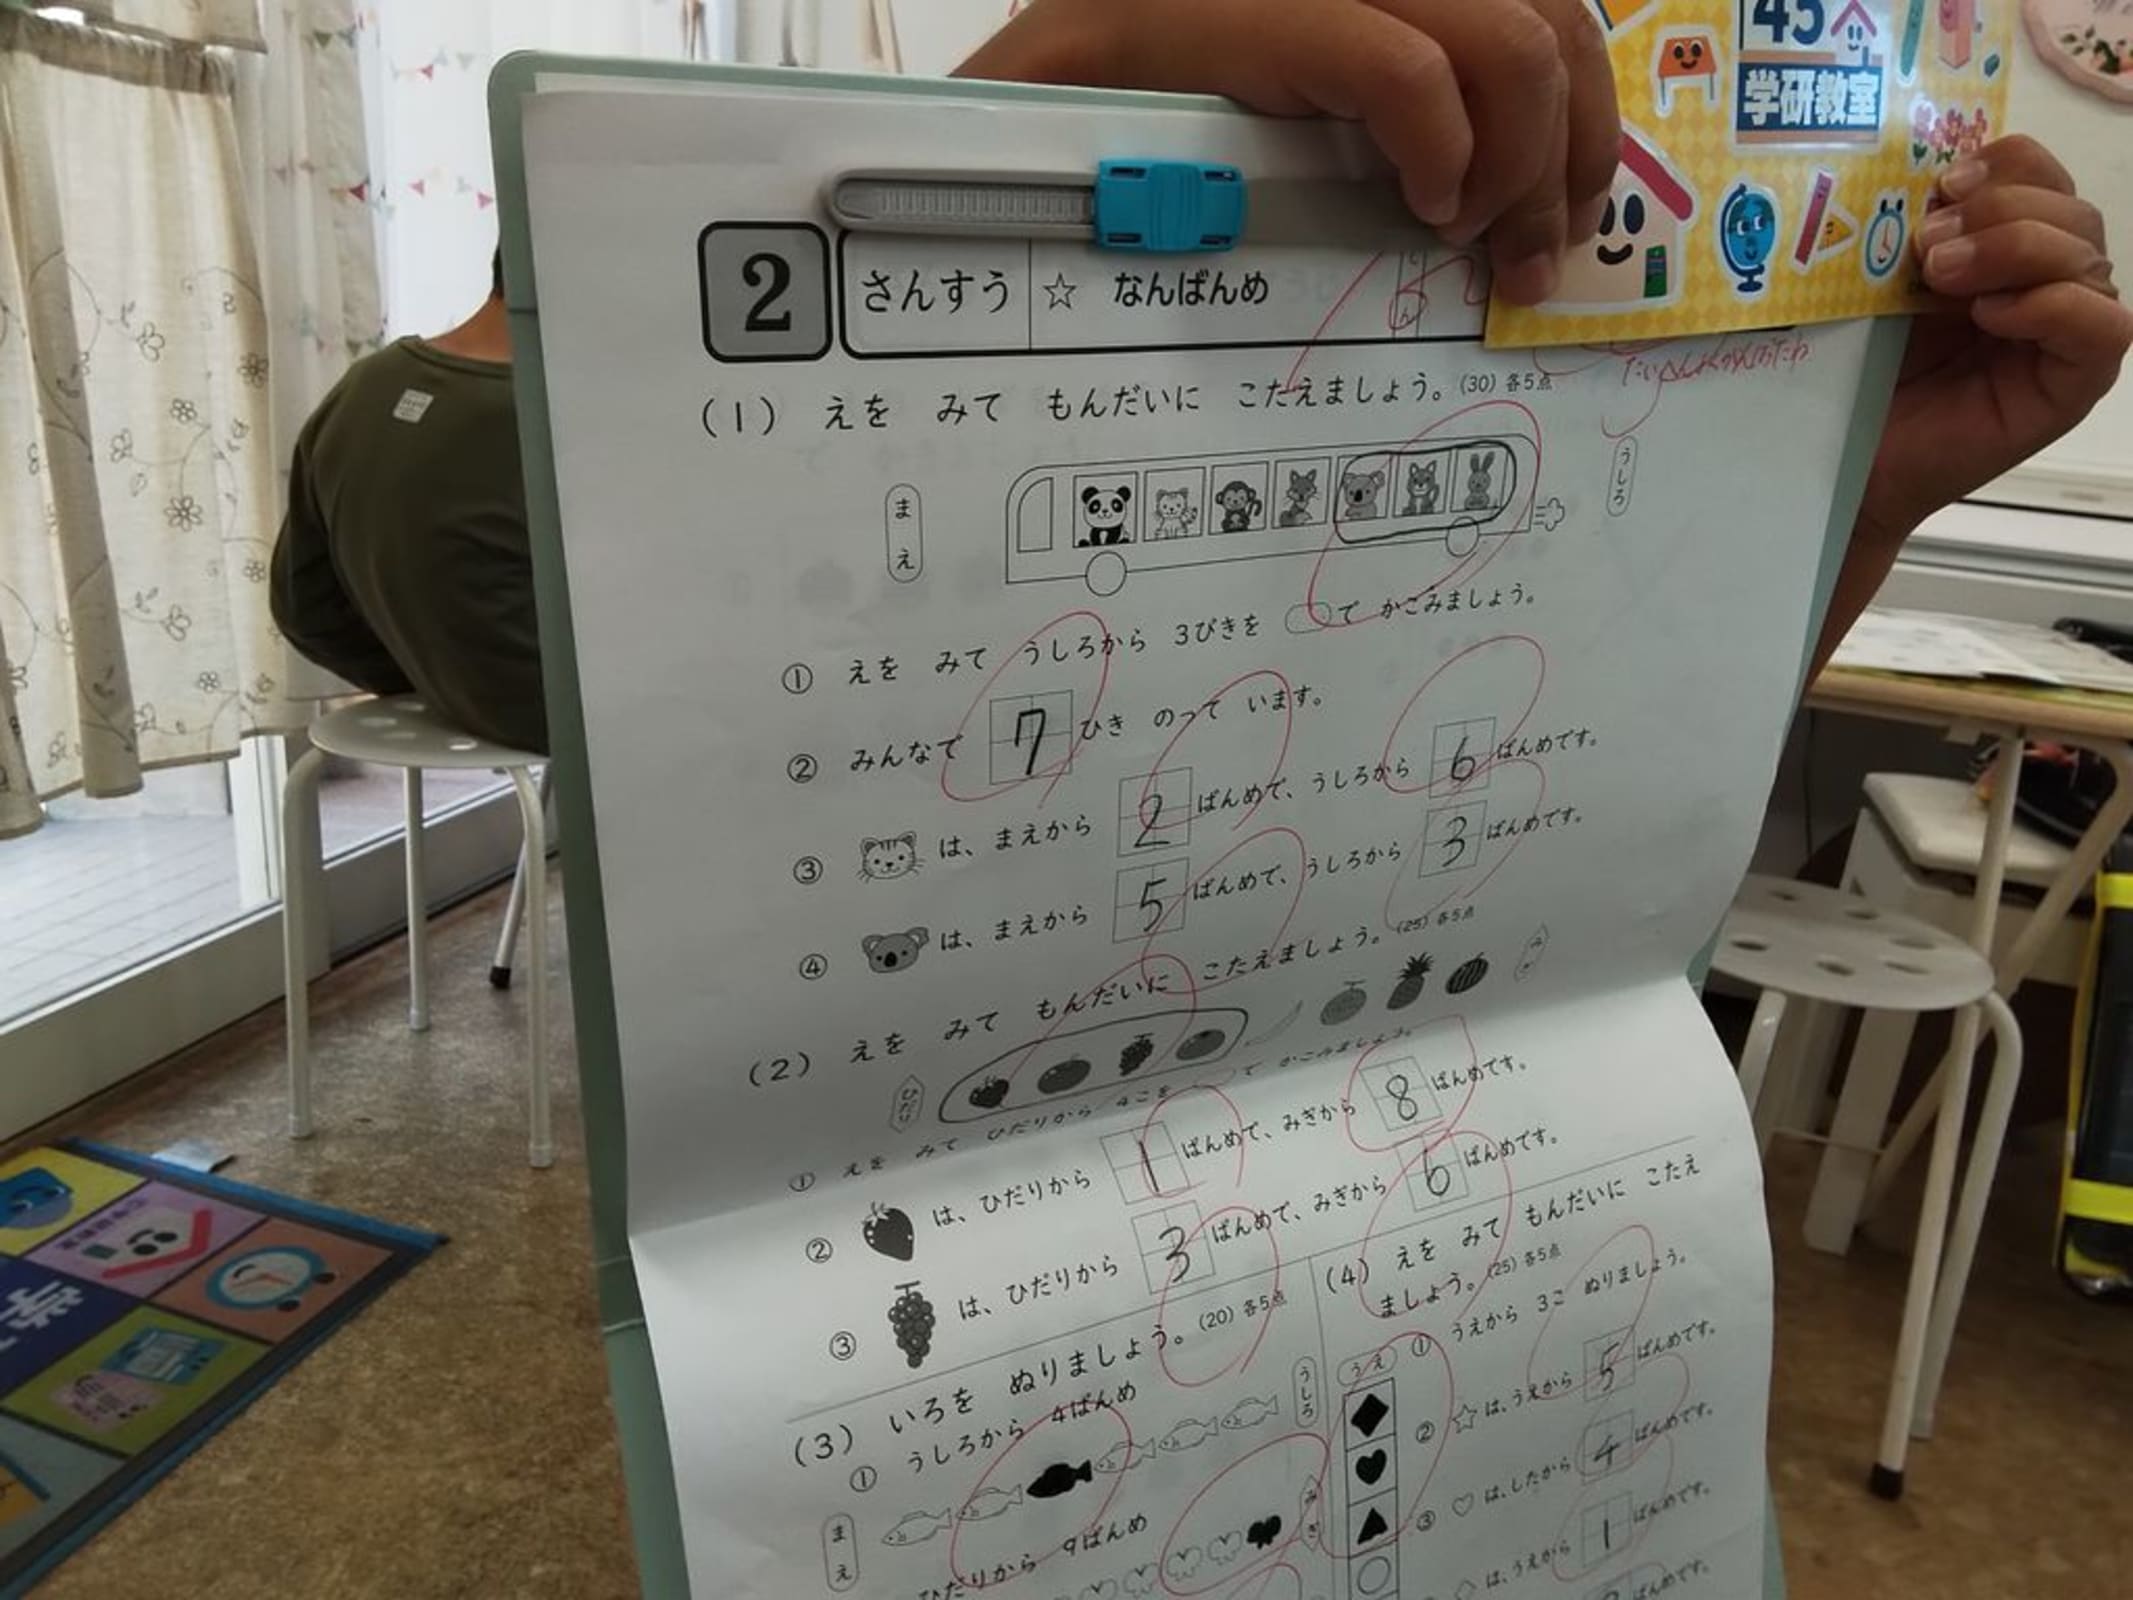 45
学研教室
2 さんすう ☆ なんばんめ
(1) えを みて もんだいに こたえましょう。(30) 各5点
まえ
うしろ
① えを みて うしろから 3びきを で かこみましょう。
② みんなで 7 ひき のって います。
③ は、まえから 2 ばんめで、うしろから 6 ばんめです。
④ は、まえから 5 ばんめで、うしろから 3 ばんめです。
(2) えを みて もんだいに こたえましょう。(25) 各5点
ひだり
① えを みて ひだりから 4こを で かこみましょう。
② は、ひだりから 1 ばんめで、みぎから 8 ばんめです。
③ は、ひだりから 3 ばんめで、みぎから 6 ばんめです。
(3) いろを ぬりましょう。(20) 各5点
① うしろから 4ばんめ
うしろ
まえ
ひだりから 9ばんめ
みぎ
(4) えを みて もんだいに こたえ
ましょう。(25) 各5点
① うえから 3こ ぬりましょう。
うえ
② ☆は、うえから 5 ばんめです。
③ ♡は、したから 4 ばんめです。
◇は、うえから 1 ばんめです。
ばんめです。